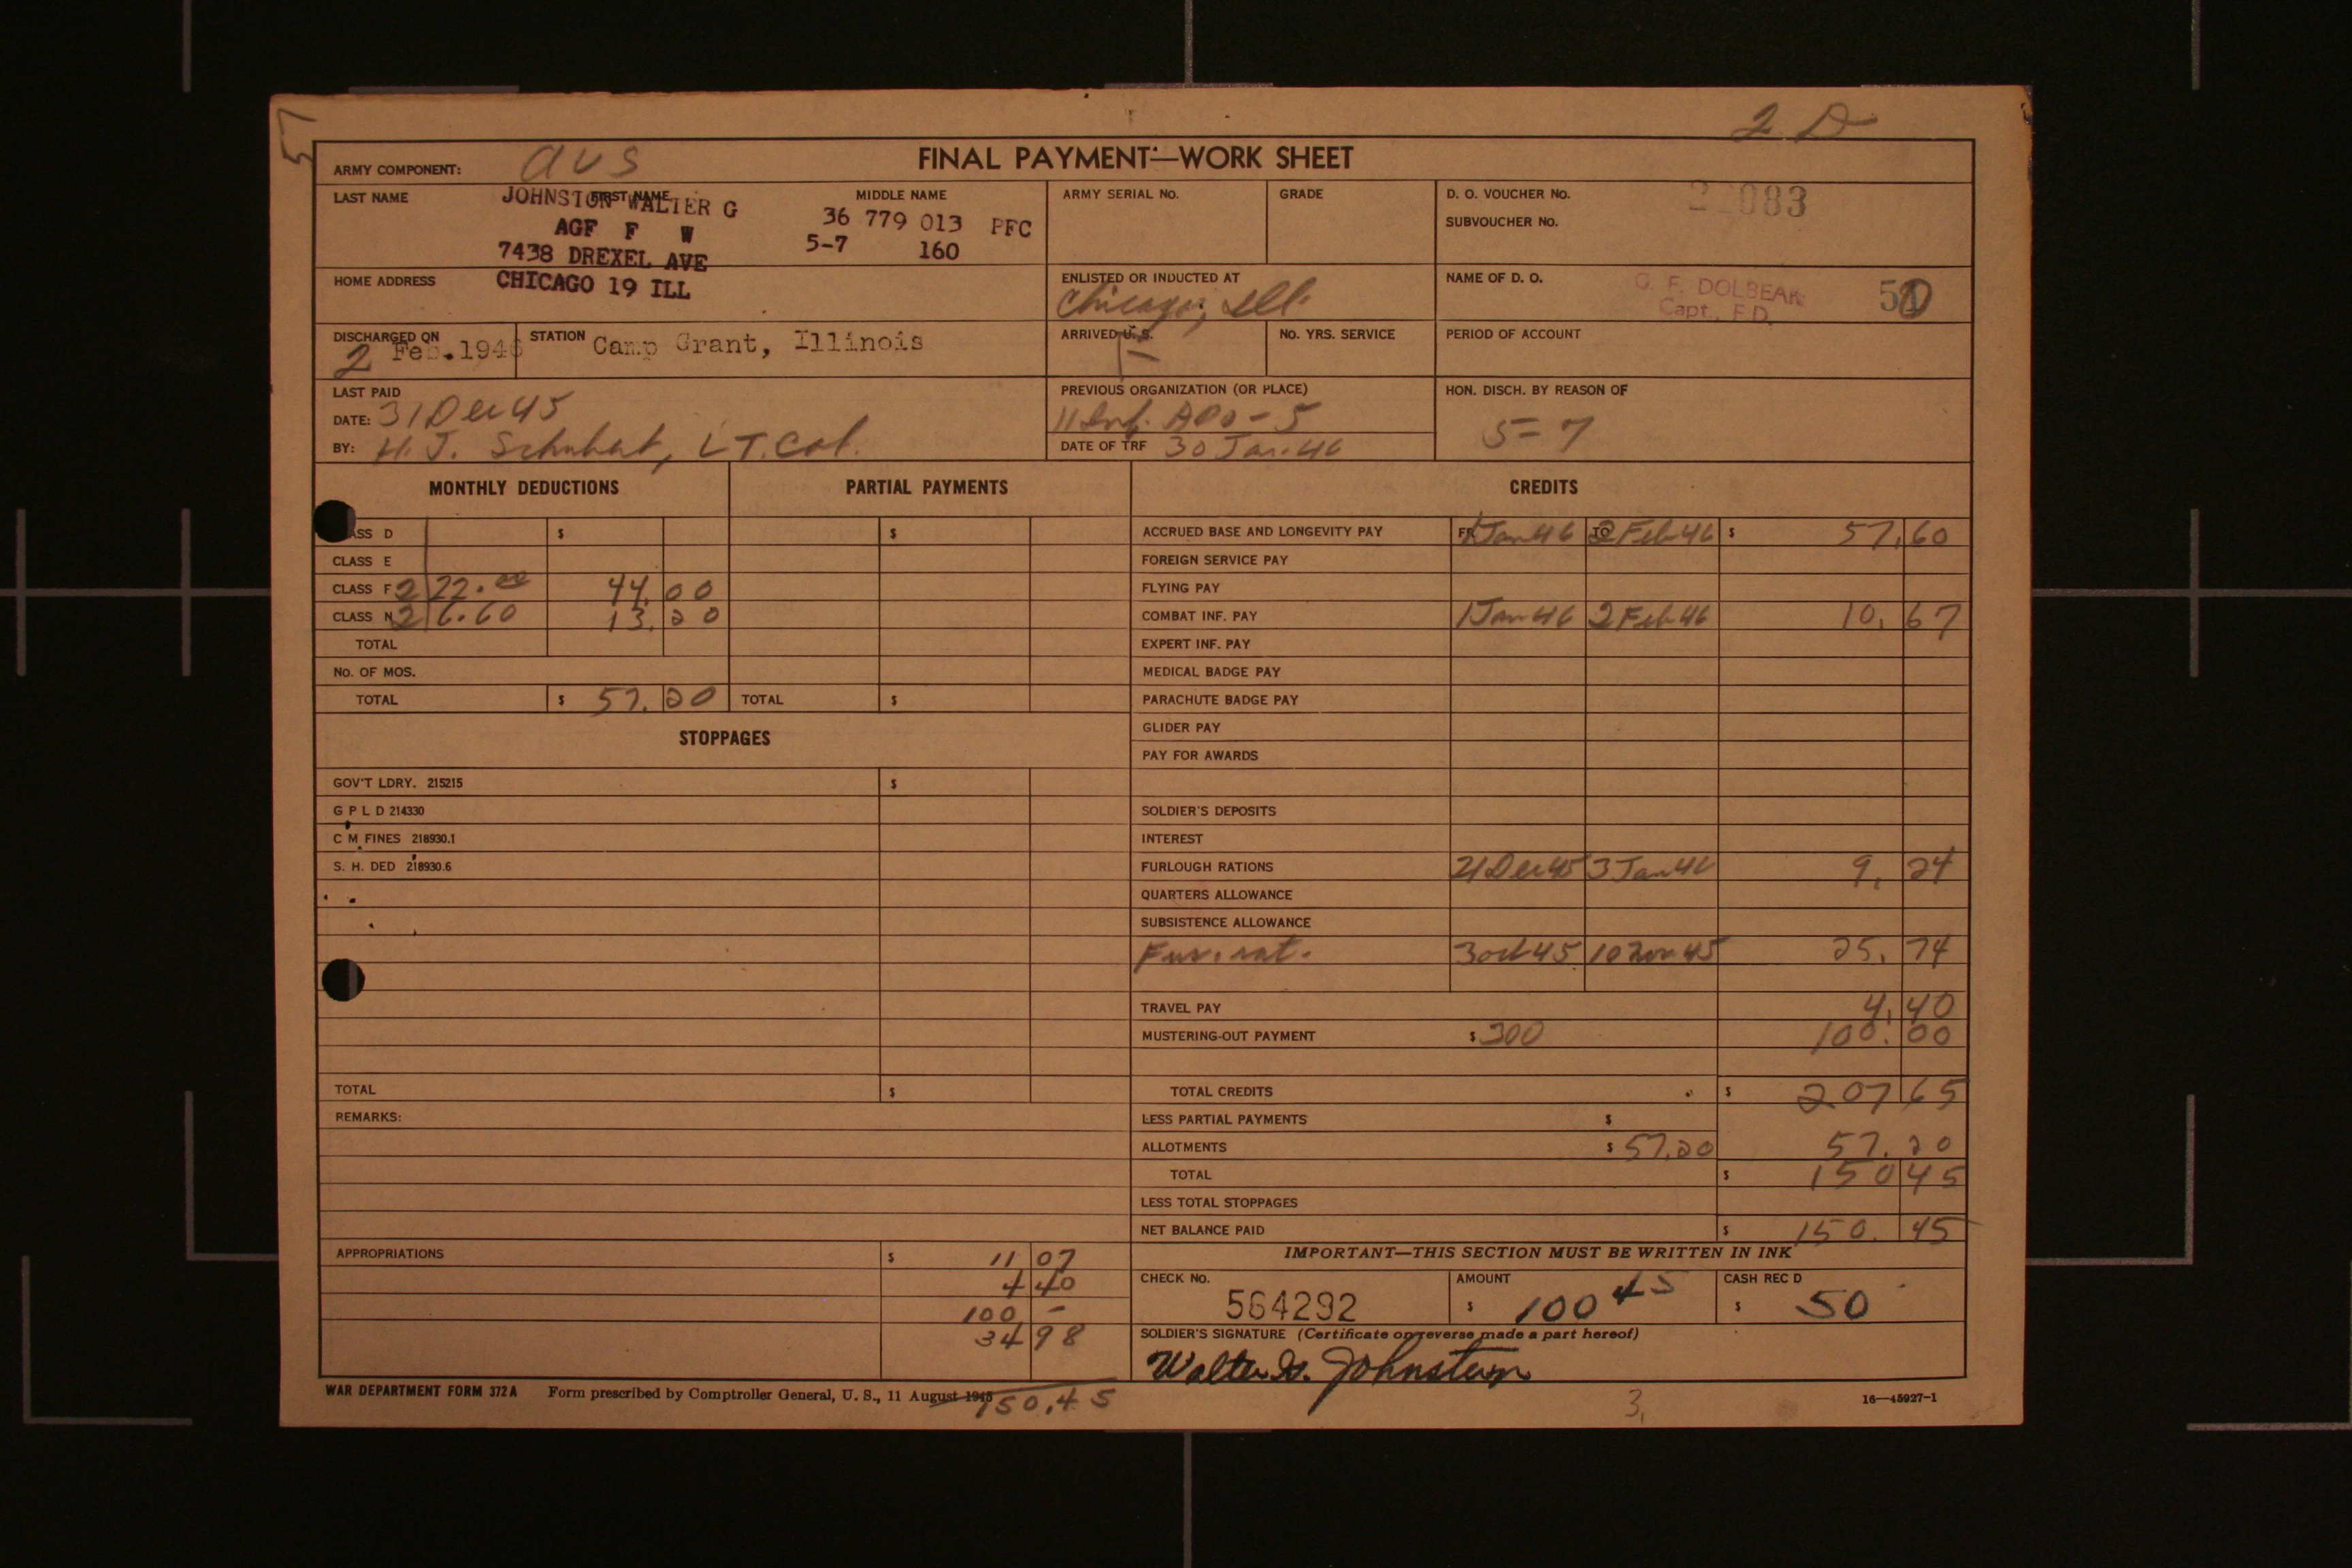 57
2 D
FINAL PAYMENT—WORK SHEET
ARMY COMPONENT: AUS
LAST NAME FIRST NAME MIDDLE NAME
JOHNSTON WALTER G
36 779 013 PFC
AGF F W
5-7 160
7438 DREXEL AVE
HOME ADDRESS CHICAGO 19 ILL
ARMY SERIAL No.
GRADE
D. O. VOUCHER No.
083
SUBVOUCHER No.
ENLISTED OR INDUCTED AT
Chicago, Ill.
NAME OF D. O.
G. F. DOLBEAR
Capt., F.D.
DISCHARGED ON
2 Feb. 1946
STATION Camp Grant, Illinois
ARRIVED U. S.
No. YRS. SERVICE
PERIOD OF ACCOUNT
LAST PAID
DATE: 31 Dec 45
BY: H. J. Schubat, LT. Col.
PREVIOUS ORGANIZATION (OR PLACE)
11 Inf. APO - 5
DATE OF TRF 30 Jan. 46
HON. DISCH. BY REASON OF
5-7
MONTHLY DEDUCTIONS
PARTIAL PAYMENTS
CLASS D $
CLASS E
CLASS F 2 22.00 44.00
CLASS N 2 6.60 13.20
TOTAL
No. OF MOS.
TOTAL $ 57.20
$
TOTAL $
STOPPAGES
GOV'T LDRY. 215215 $
G P L D 214330
C M FINES 218930.1
S. H. DED 218930.6
TOTAL $
REMARKS:
APPROPRIATIONS $ 11 07
4 40
100 -
34 98
CREDITS
ACCRUED BASE AND LONGEVITY PAY FR 1 Jan 46 TO 2 Feb 46 $ 57.60
FOREIGN SERVICE PAY
FLYING PAY
COMBAT INF. PAY 1 Jan 46 2 Feb 46 10.67
EXPERT INF. PAY
MEDICAL BADGE PAY
PARACHUTE BADGE PAY
GLIDER PAY
PAY FOR AWARDS
SOLDIER'S DEPOSITS
INTEREST
FURLOUGH RATIONS 21 Dec 45 3 Jan 46 9.24
QUARTERS ALLOWANCE
SUBSISTENCE ALLOWANCE
Fur. rat. 3 Oct 45 10 Nov 45 25.74
TRAVEL PAY 4.40
MUSTERING-OUT PAYMENT $ 300 100.00
TOTAL CREDITS $ 207 65
LESS PARTIAL PAYMENTS $
ALLOTMENTS $ 57.20 57.20
TOTAL $ 150 45
LESS TOTAL STOPPAGES
NET BALANCE PAID $ 150.45
IMPORTANT—THIS SECTION MUST BE WRITTEN IN INK
CHECK No.
564292
AMOUNT
$ 100 45
CASH REC D
$ 50
SOLDIER'S SIGNATURE (Certificate on reverse made a part hereof)
Walter G. Johnston
WAR DEPARTMENT FORM 372 A
Form prescribed by Comptroller General, U. S., 11 August 1945
150.45
3.
16—45927-1